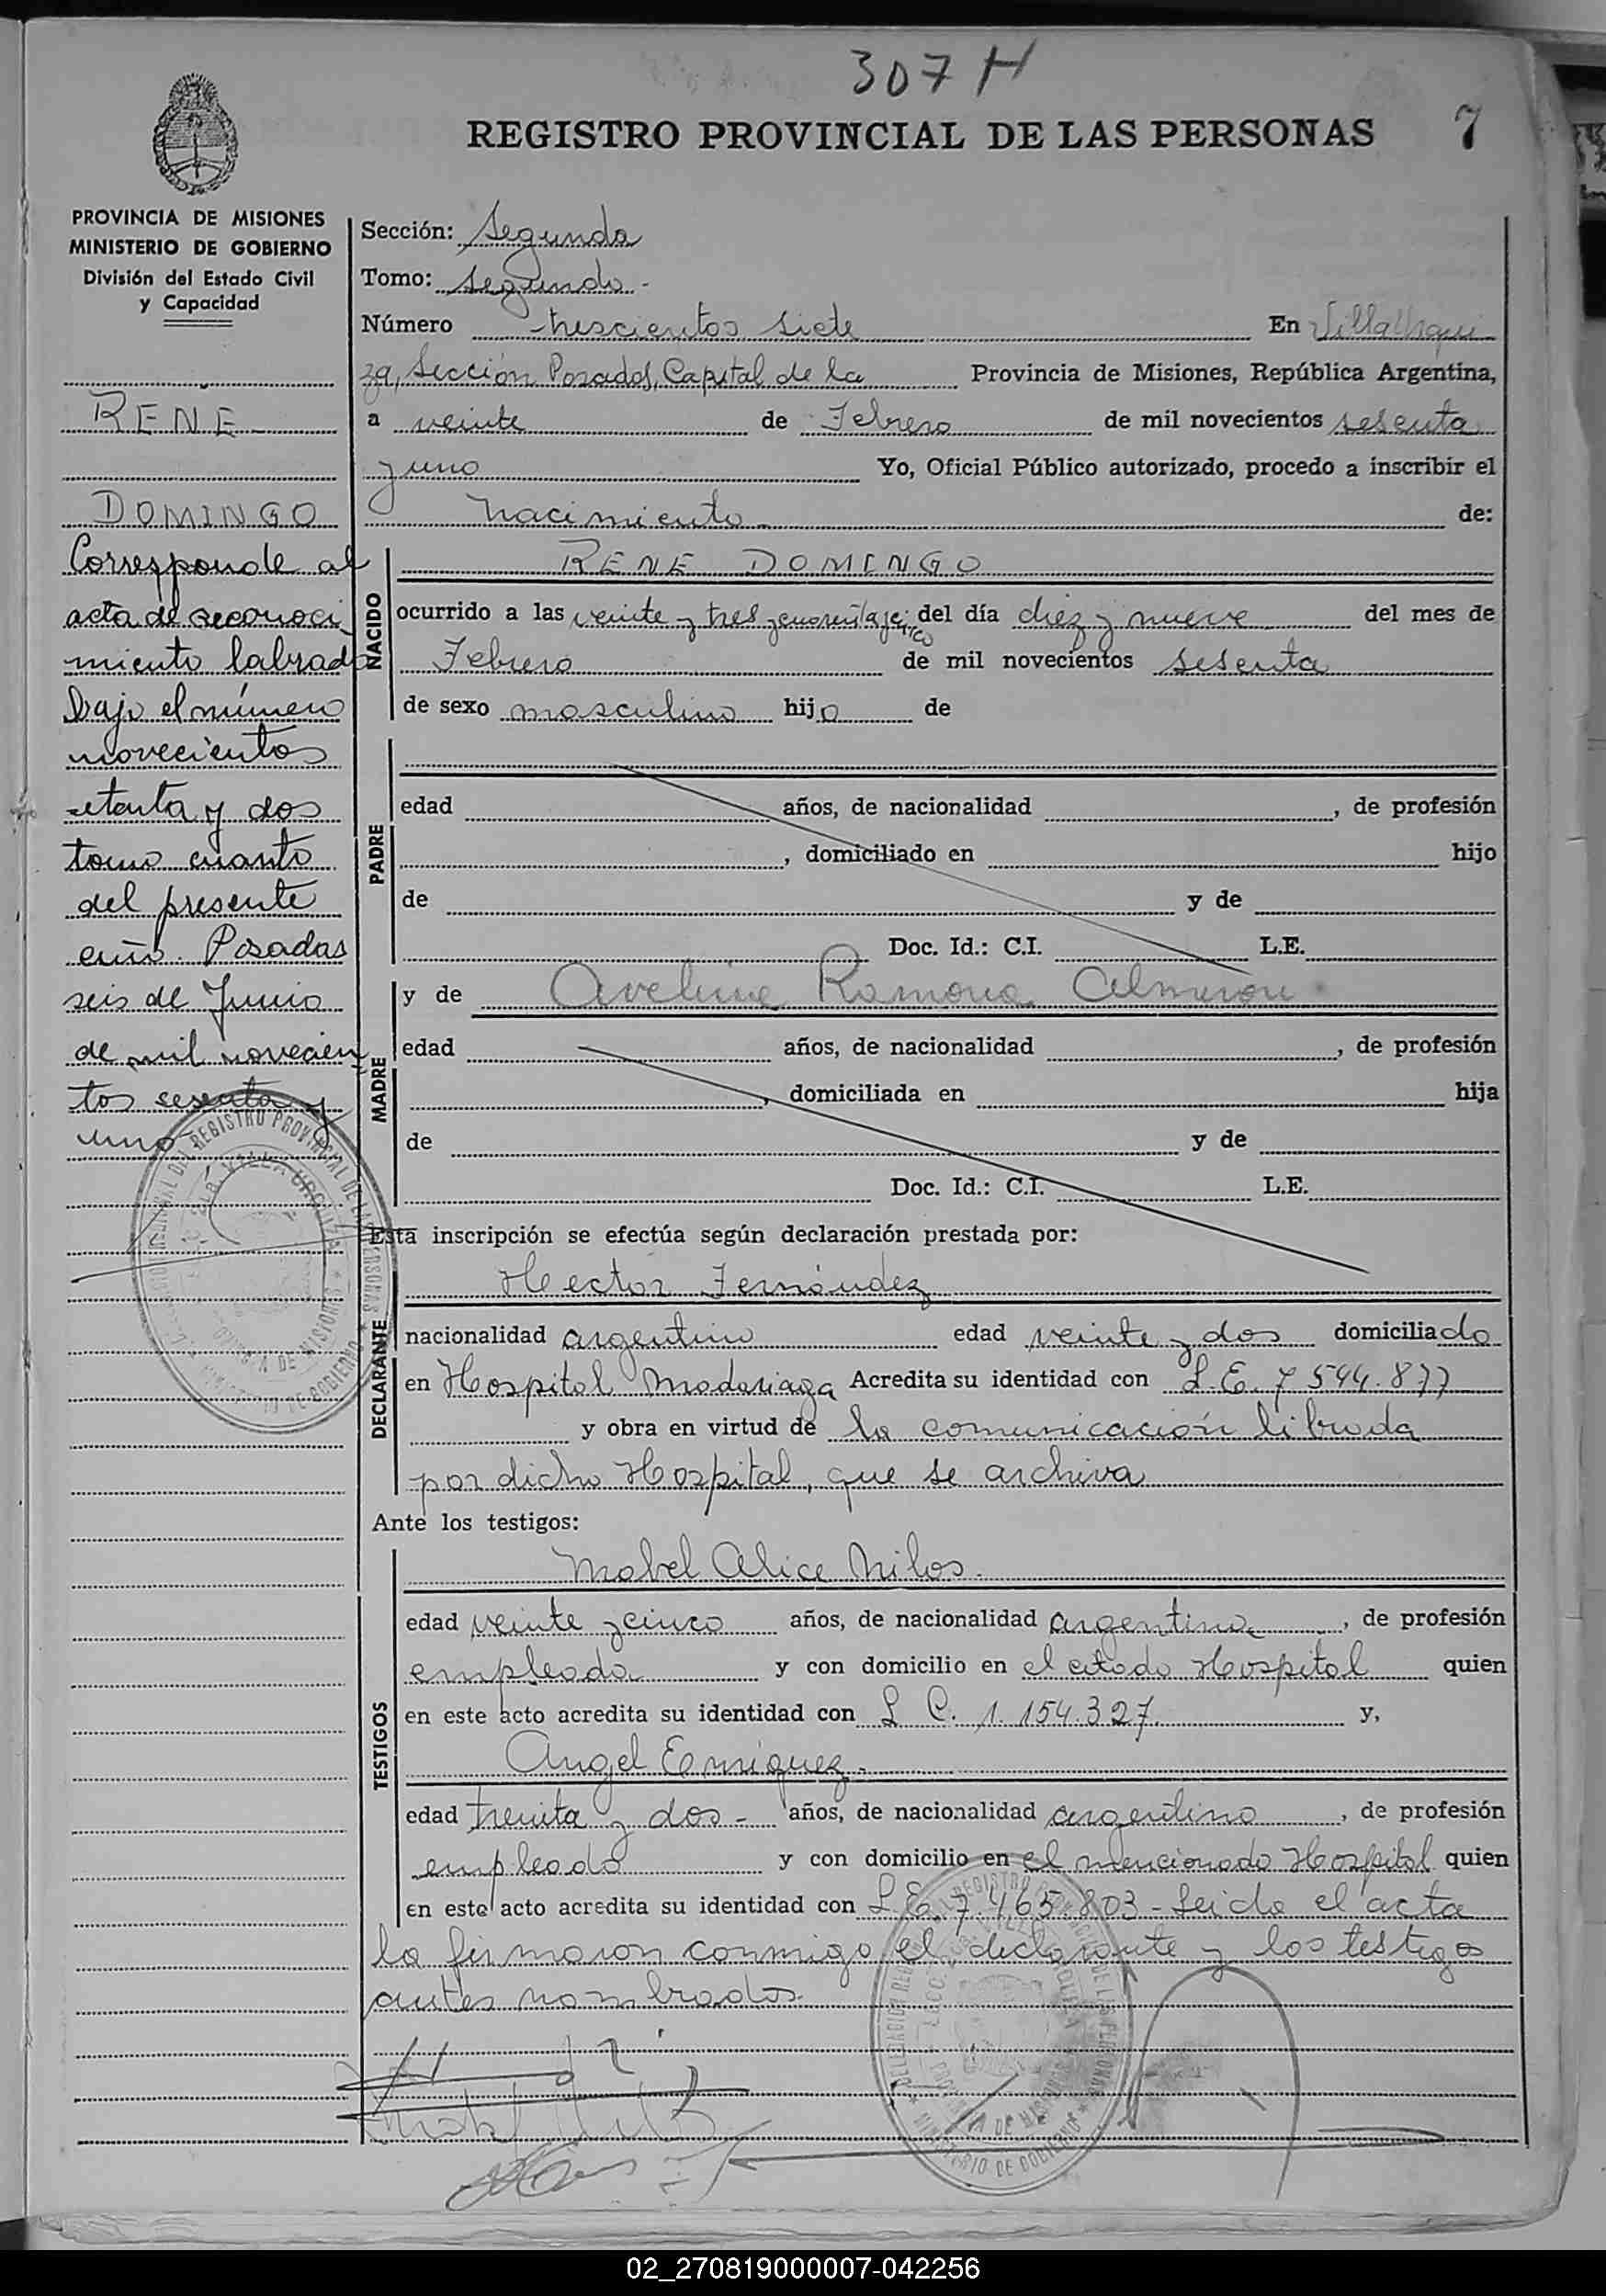 307 H
REGISTRO PROVINCIAL DE LAS PERSONAS 7
PROVINCIA DE MISIONES
MINISTERIO DE GOBIERNO
División del Estado Civil
y Capacidad
RENE
DOMINGO
Corresponde al
acta de reconoci
miento labrada
bajo el número
novecientos
setenta y dos
tomo cuarto
del presente
año. Posadas
seis de Junio
de mil novecien
tos sesenta y
uno
Sección: Segunda
Tomo: segundo
Número trescientos siete En Villa Urqui
za, Sección Posadas, Capital de la Provincia de Misiones, República Argentina,
a veinte de Febrero de mil novecientos sesenta
y uno Yo, Oficial Público autorizado, procedo a inscribir el
nacimiento de:
NACIDO
RENE DOMINGO
ocurrido a las veinte y tres y cuarenta y cinco del día diez y nueve del mes de
Febrero de mil novecientos sesenta
de sexo masculino hijo de
PADRE
edad años, de nacionalidad , de profesión
, domiciliado en hijo
de y de
Doc. Id.: C.I. L.E.
MADRE
y de Avelina Ramona Almiron
edad años, de nacionalidad , de profesión
, domiciliada en hija
de y de
Doc. Id.: C.I. L.E.
Esta inscripción se efectúa según declaración prestada por:
DECLARANTE
Hector Fernández
nacionalidad argentino edad veinte y dos domiciliado
en Hospital Madariaga Acredita su identidad con L.E. 7 544.877
y obra en virtud de la comunicación librada
por dicho Hospital, que se archiva
Ante los testigos:
TESTIGOS
Mabel Alice Milos.
edad veinte y cinco años, de nacionalidad argentina, de profesión
empleada y con domicilio en el citado Hospital quien
en este acto acredita su identidad con L C. 1.154.327. y,
Angel Enriquez.
edad treinta y dos - años, de nacionalidad argentino, de profesión
empleado y con domicilio en el mencionado Hospital quien
en este acto acredita su identidad con L.E. 7.465.803 - Leida el acta
la firmaron conmigo el declarante y los testigos
antes nombrados.
REGISTRO PROVINCIAL DE LAS PERSONAS
MINISTERIO DE GOBIERNO
02_270819000007-042256